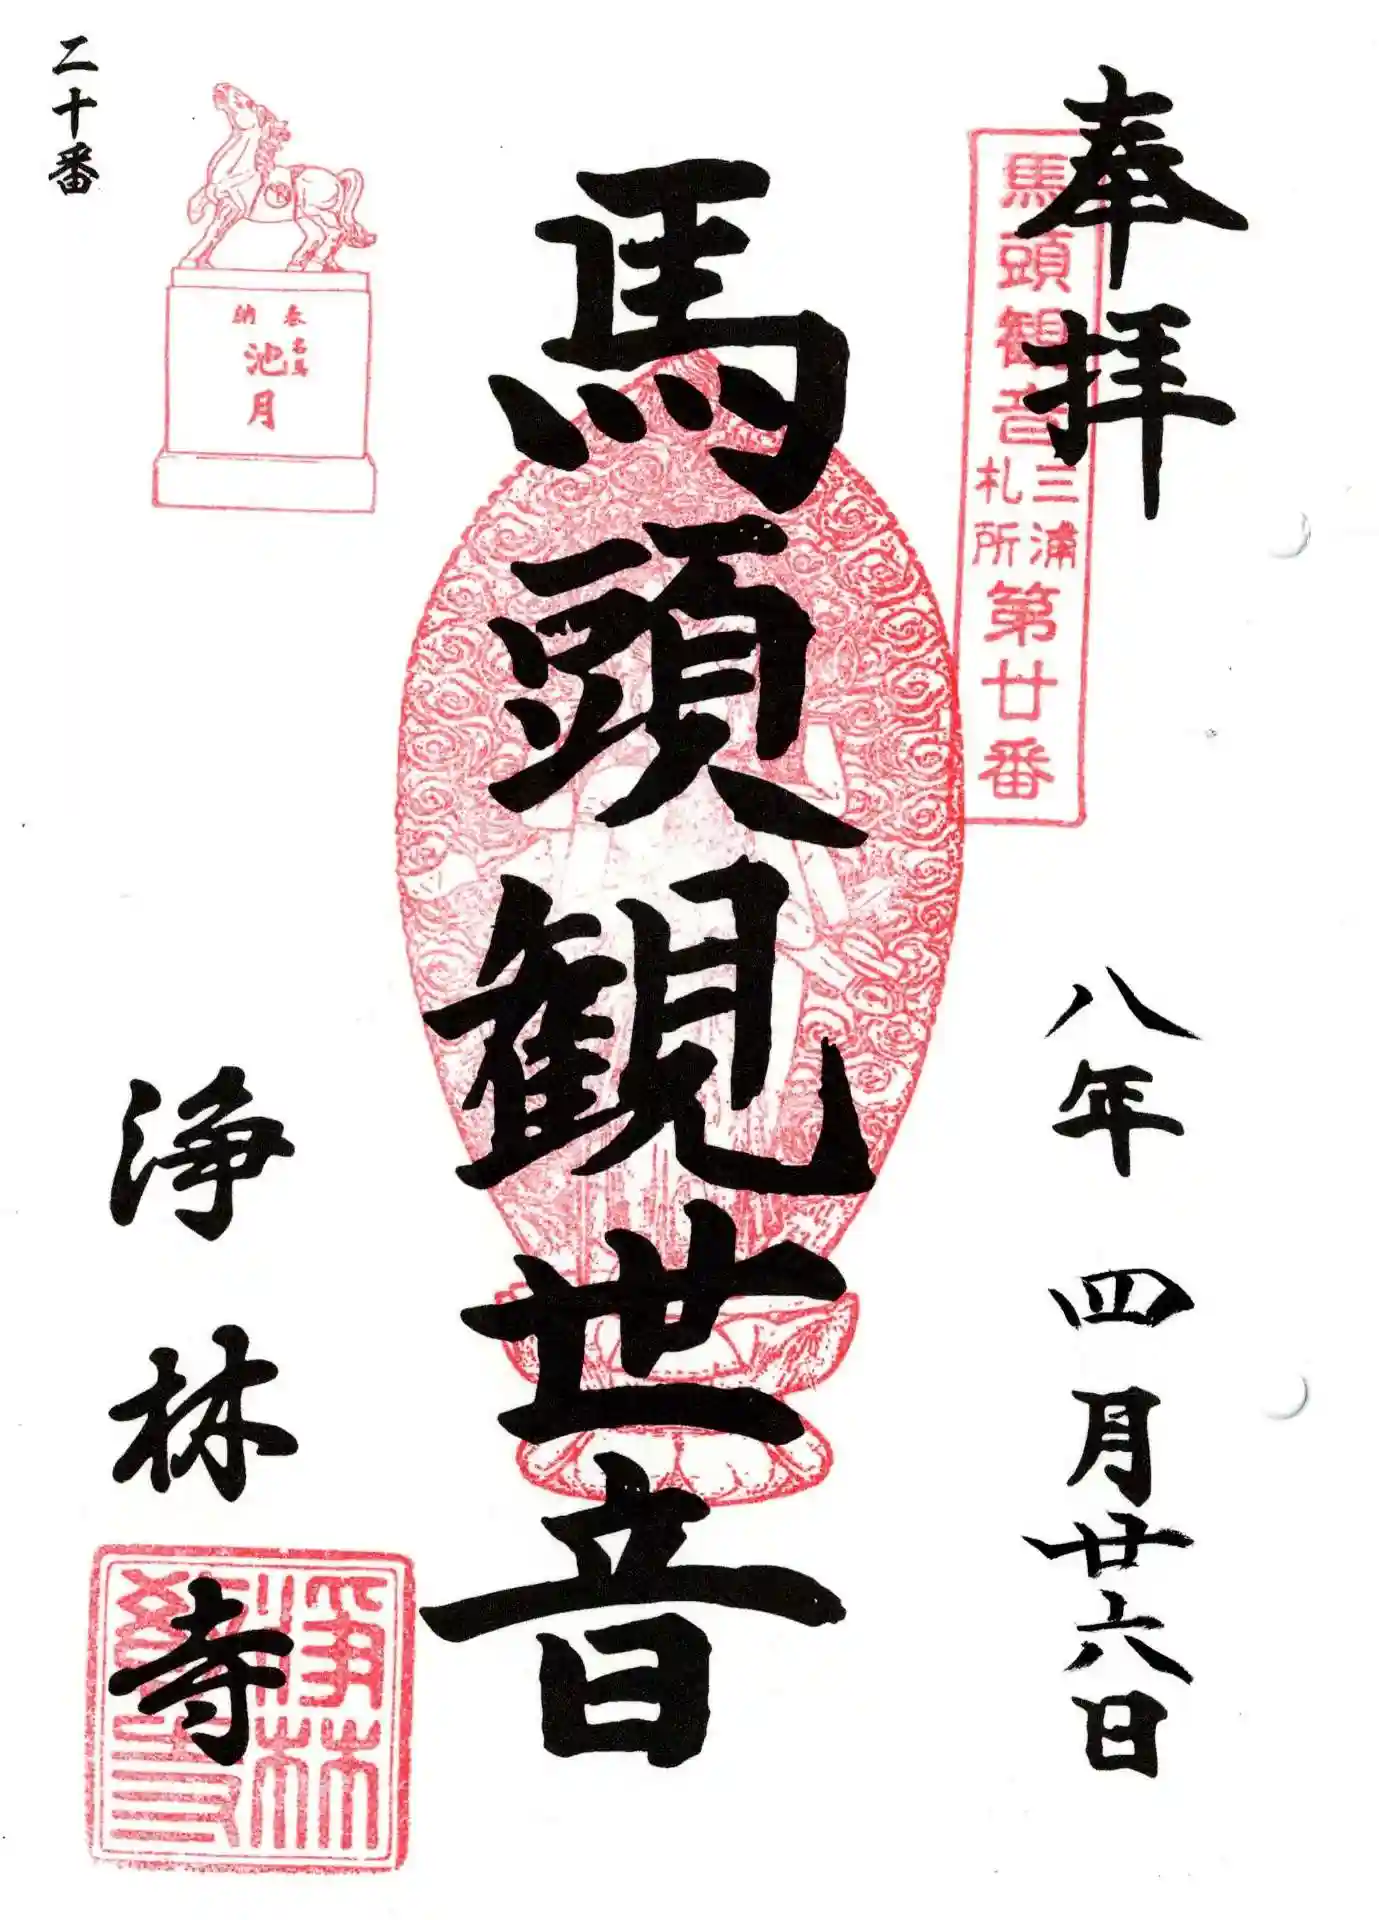 奉拝
馬頭観音三浦札所第廿番
八年 四月廿六日
馬頭観世音
奉納
名馬
池月
浄林寺
二十番